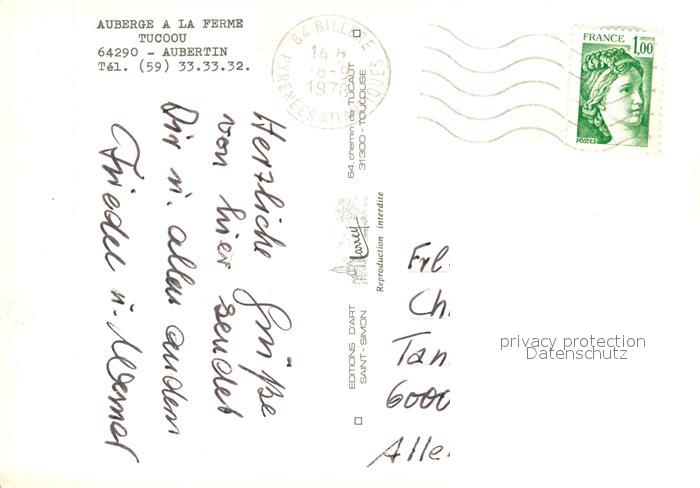 AUBERGE A LA FERME
TUCOOU
64290 - AUBERTIN
Tél. (59) 33.33.32.
64 BILLERE
14 H
1978
PYRENEES ATLANTIQUES
FRANCE
1,00
POSTES
64, chemin de TUCAUT
31300 - TOULOUSE
Larrey
Reproduction interdite
EDITIONS D'ART
SAINT-SIMON
Herzliche Grüße
von hier sendet
Dir u. allen andern
Frieder u. Werner
Frl.
Ch
Tan
6000
Alle
privacy protection
Datenschutz